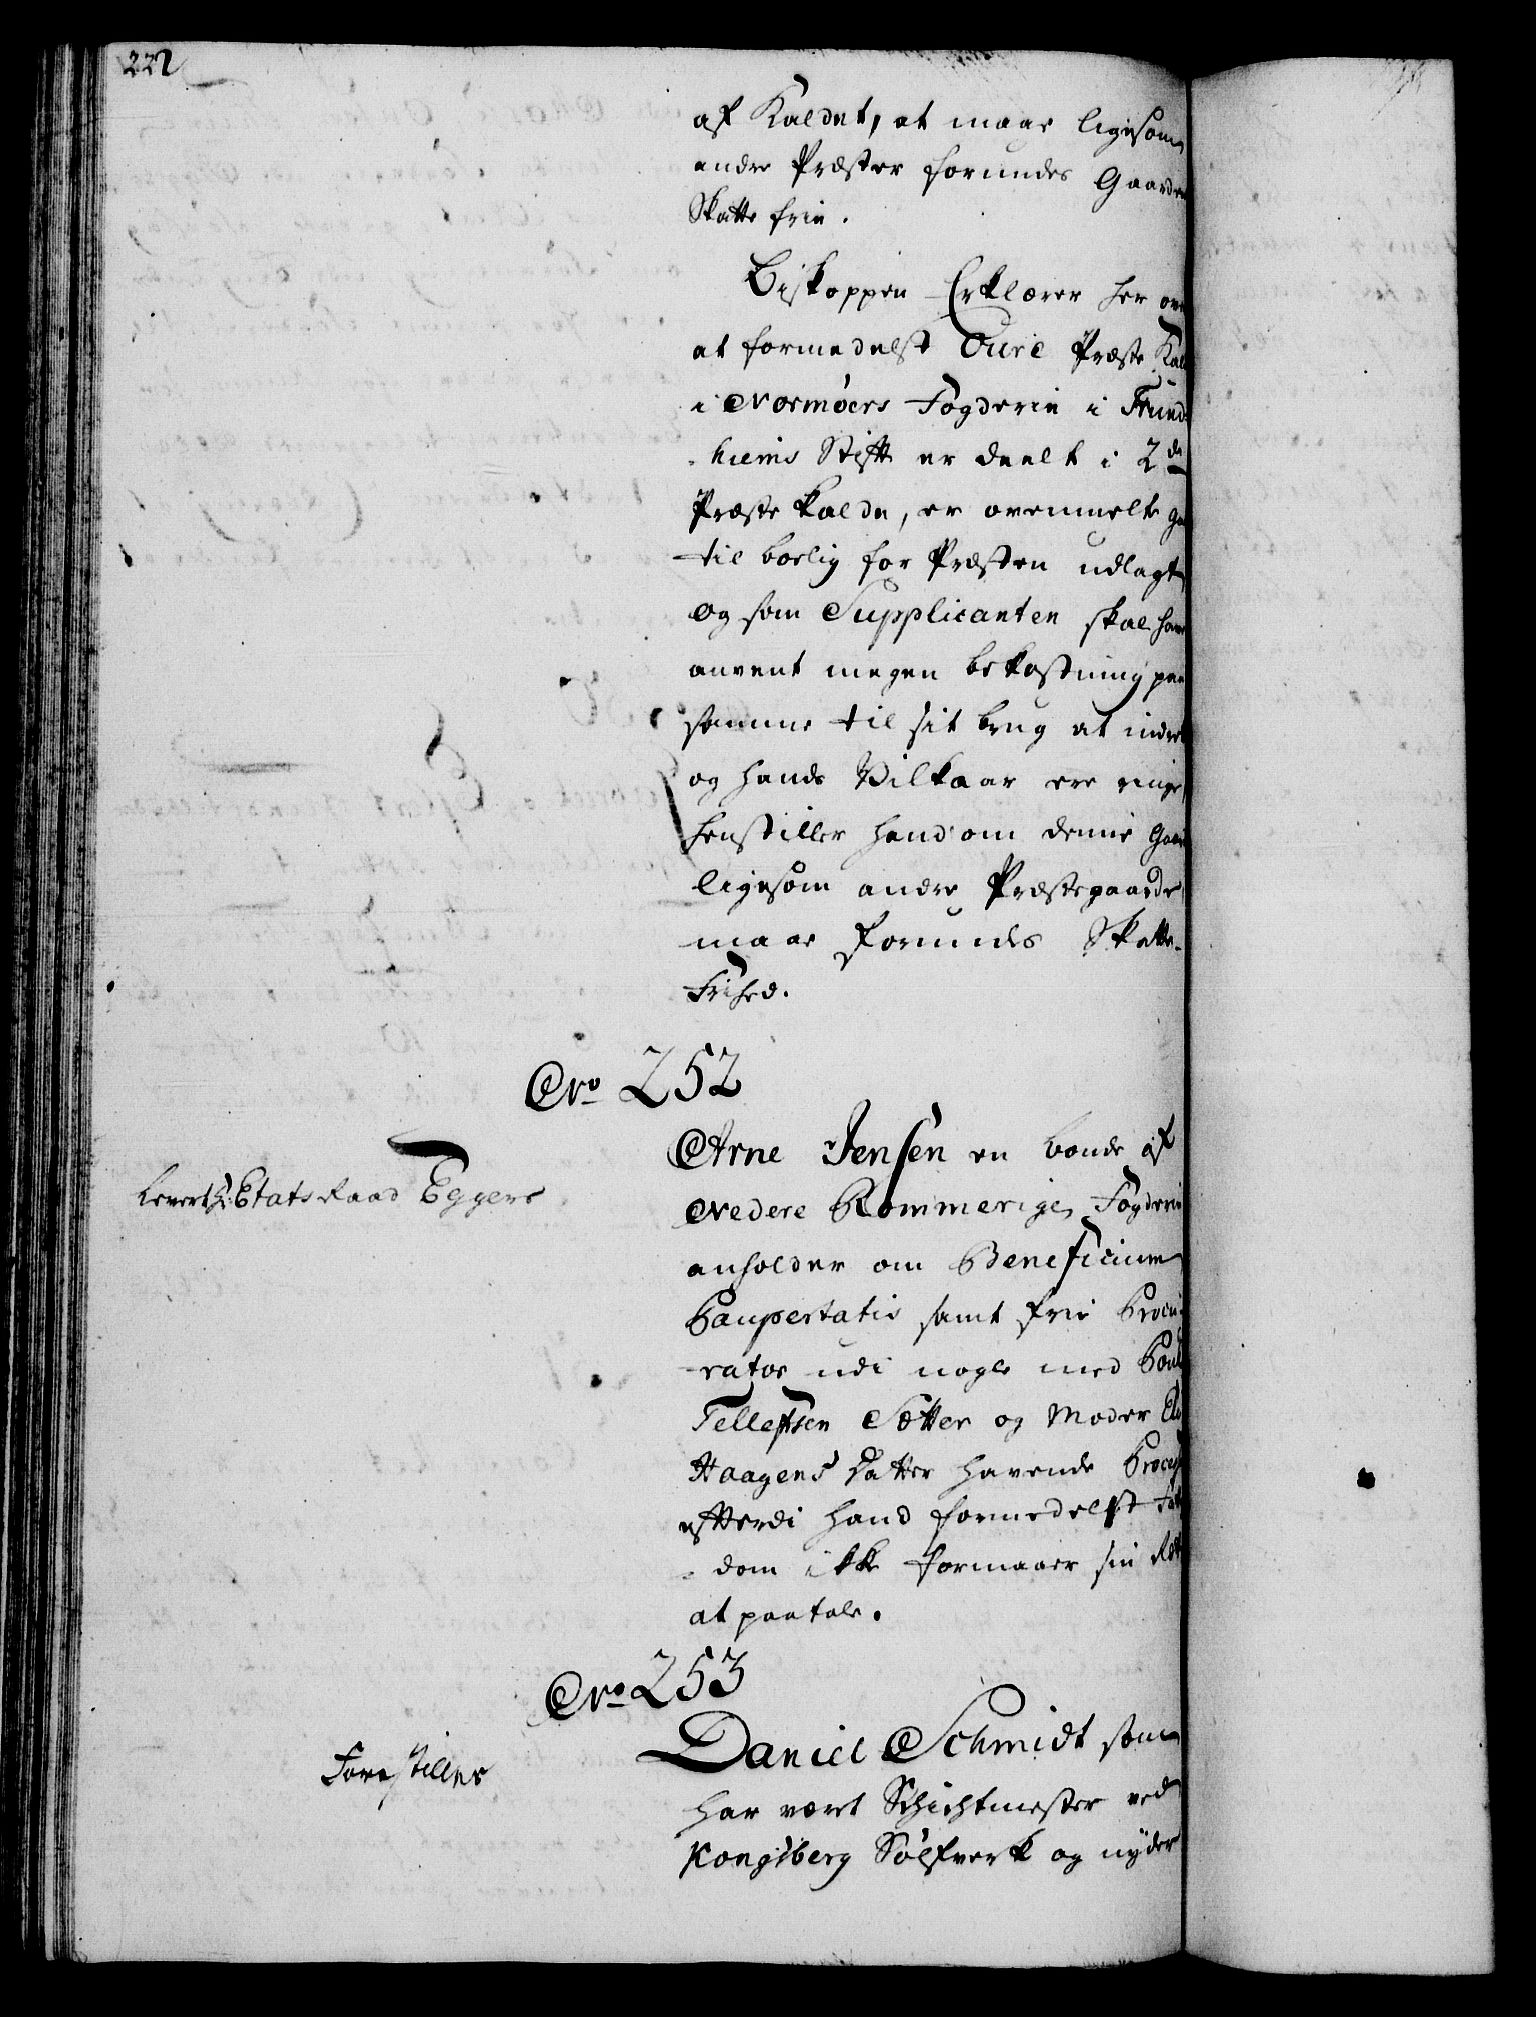 222
af Kaldet, at maae ligesom
andre Præster forundes Gaarden
Skatte frie.
Biskoppen Erklærer her ov
at formedelst Oure Præste Kal
i Normøers Fogderie i Trund-
hiems Stift er deelt i 2de
Præste Kalde, er ovenmelte Ga
til boelig for Præsten udlagt,
og som Supplicanten skal have
anvent megen bekostning paa
samme til sit brug at indret
og hands Vilkaar ere ringe,
henstiller hand om denne Gaar
ligesom andre Præstegaarde
maae forundes Skatte-
Frihed.
Nro 252
Levert Hr Etats Raad Eggers
Arne Jensen en bonde af
Nedere Rommerige Fogderie
anholder om Beneficium
Paupertatis samt frie Procu-
rator udi nogle med Poul
Tellefsen Sætter og Moder
Haagens Datter havende Process
efterdi hand formedelst Fat
dom ikke formaaer sin Ret
at paatale.
Nro 253
Forestilles
Daniel Schmidt som
har vært Schichtmester ved
Kongsberg Sølfverk og nyder